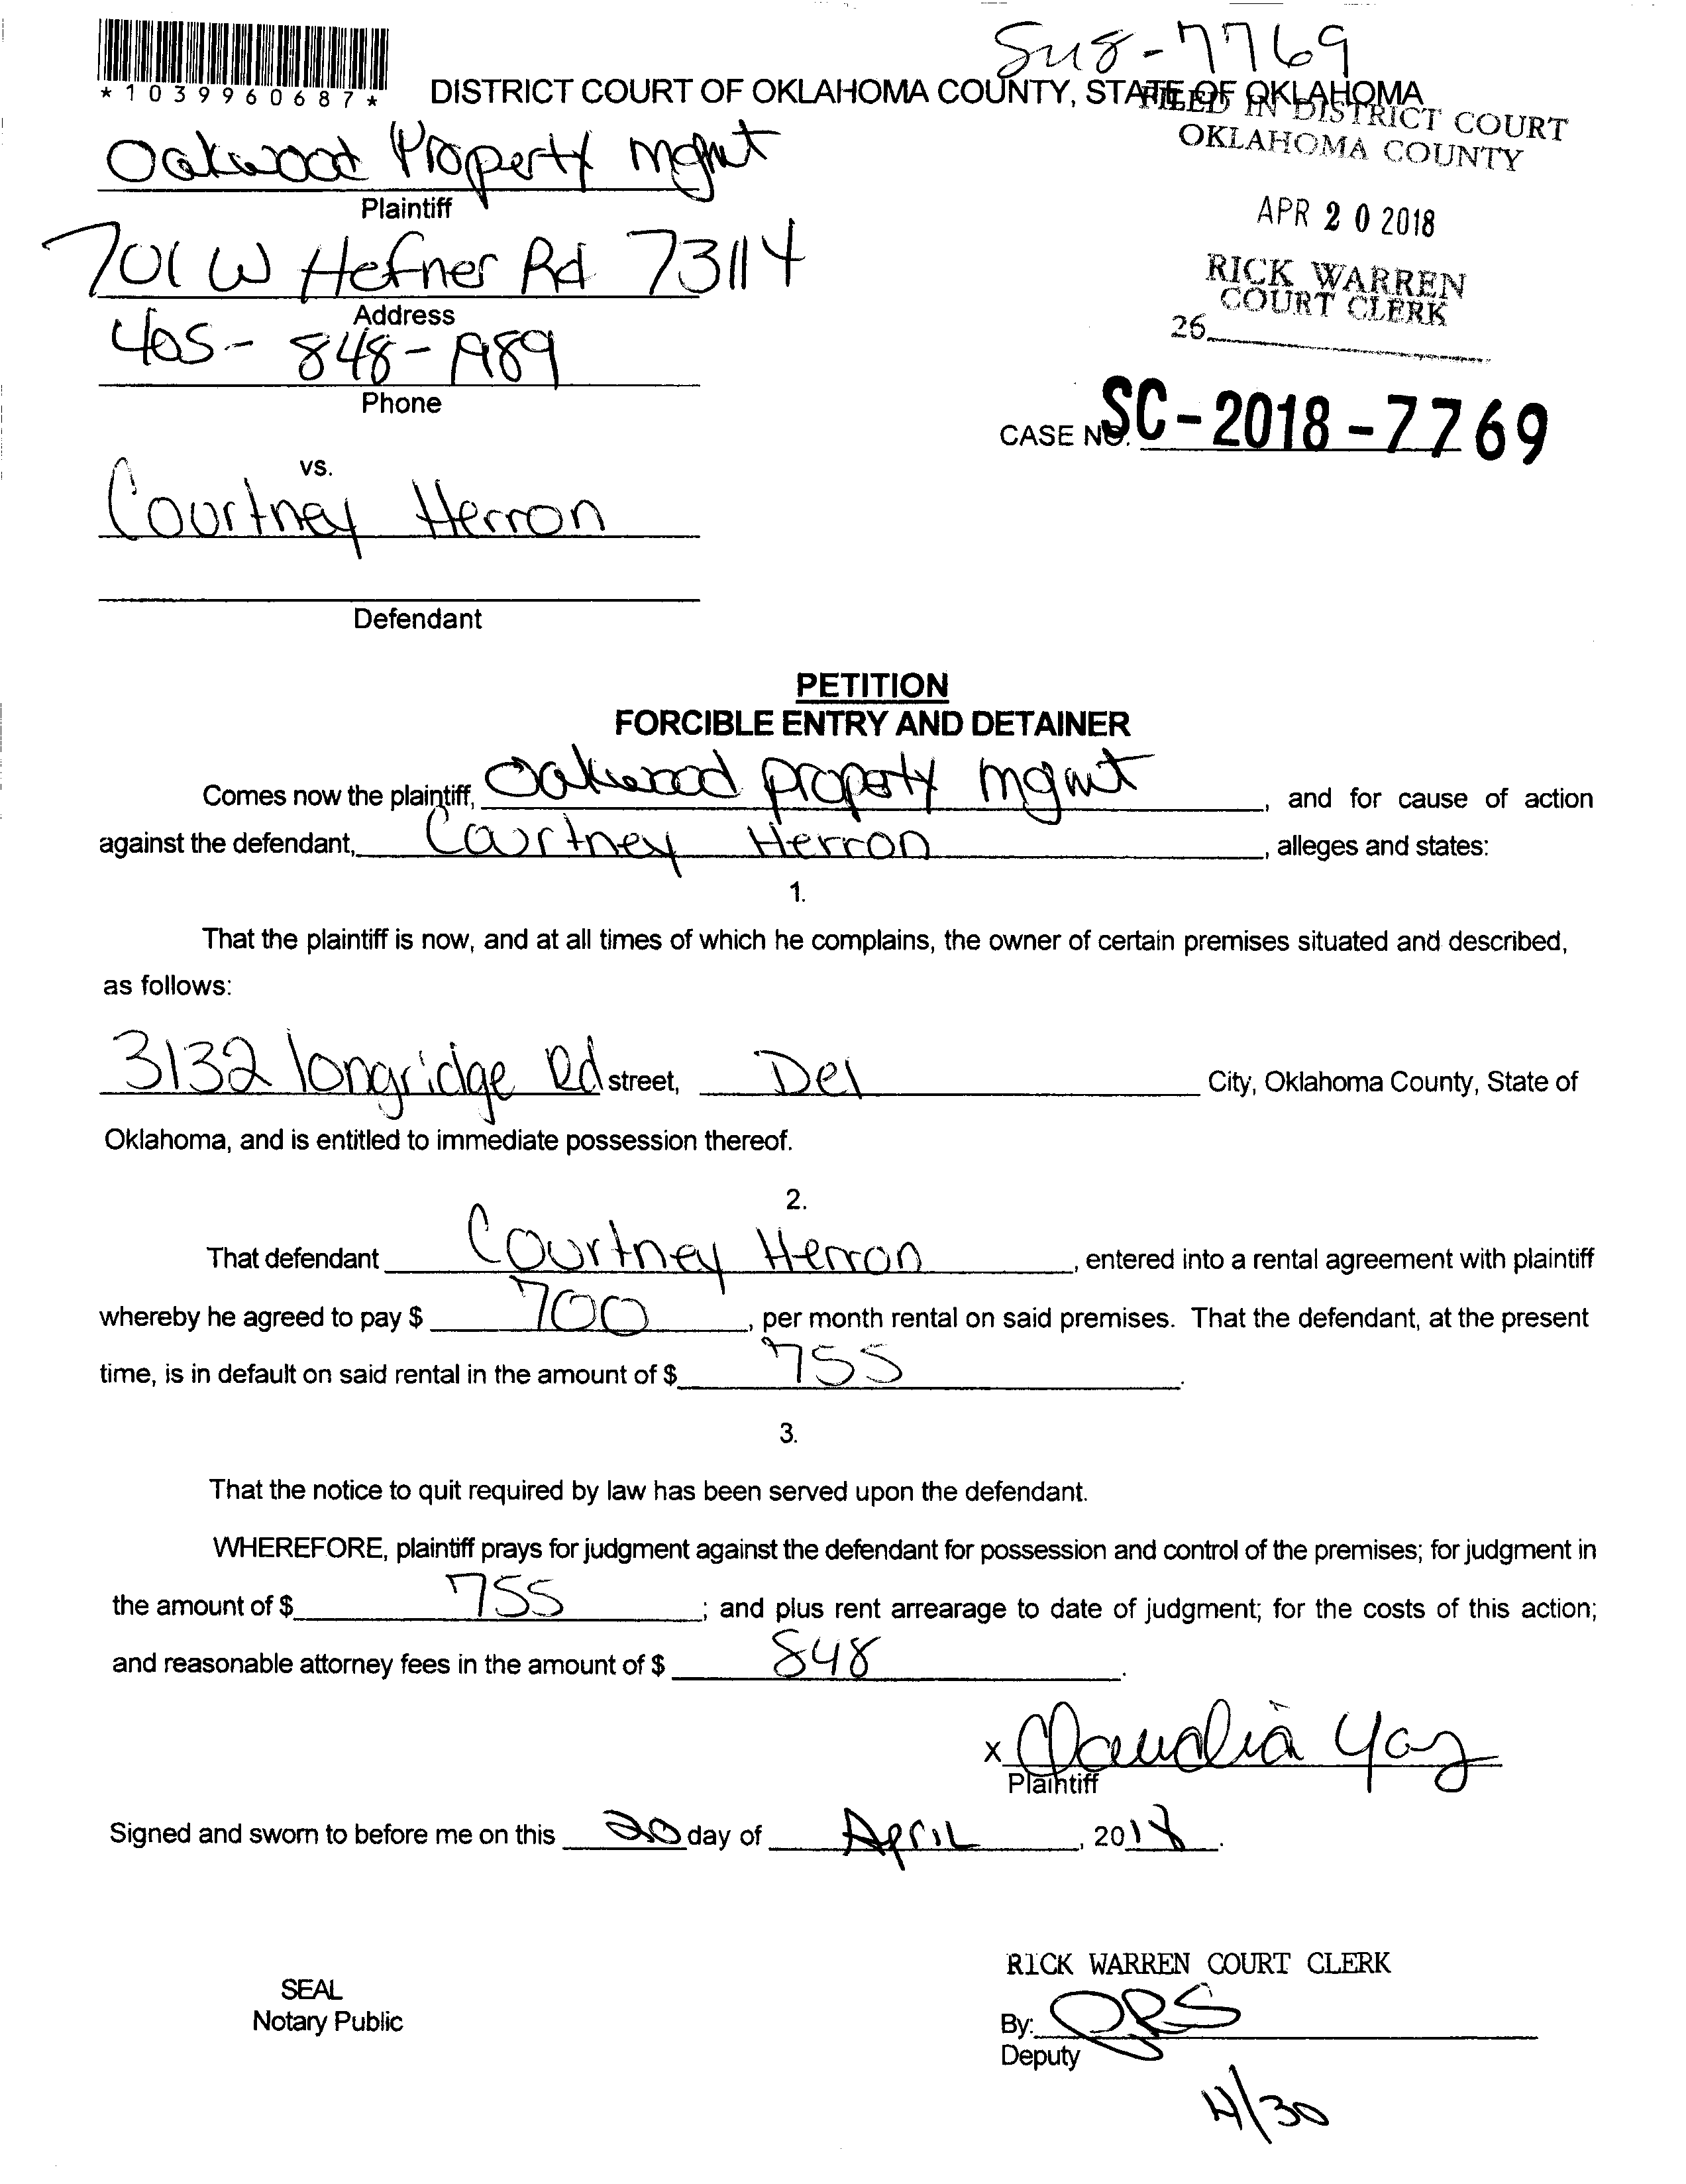 SM8-7769
*1039960687*
DISTRICT COURT OF OKLAHOMA COUNTY, STATE OF OKLAHOMA
FILED IN DISTRICT COURT
OKLAHOMA COUNTY
Oakwood Property Mgmt
Plaintiff
APR 20 2018
701 W Hefner Rd 73114
Address
RICK WARREN
COURT CLERK
26
405-848-1989
Phone
CASE NO. SC-2018-7769
vs.
Courtney Herron
Defendant
PETITION
FORCIBLE ENTRY AND DETAINER
Comes now the plaintiff, Oakwood property mgmt, and for cause of action
against the defendant, Courtney Herron, alleges and states:
1.
That the plaintiff is now, and at all times of which he complains, the owner of certain premises situated and described,
as follows:
3132 longridge Rd street, Del City, Oklahoma County, State of
Oklahoma, and is entitled to immediate possession thereof.
2.
That defendant Courtney Herron, entered into a rental agreement with plaintiff
whereby he agreed to pay $ 700, per month rental on said premises. That the defendant, at the present
time, is in default on said rental in the amount of $ 755.
3.
That the notice to quit required by law has been served upon the defendant.
WHEREFORE, plaintiff prays for judgment against the defendant for possession and control of the premises; for judgment in
the amount of $ 755; and plus rent arrearage to date of judgment; for the costs of this action;
and reasonable attorney fees in the amount of $ 848.
x Claudia Yaz
Plaintiff
Signed and sworn to before me on this 20 day of April, 2018.
RICK WARREN COURT CLERK
SEAL
Notary Public
By:
Deputy
4/30